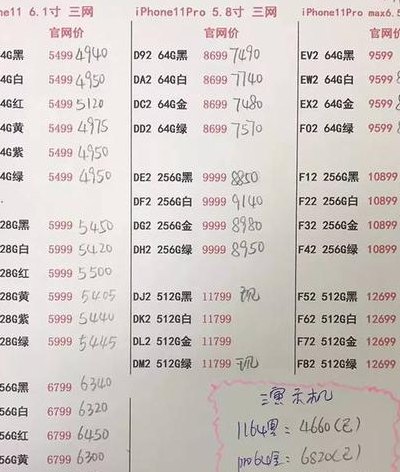 ne11 6.1寸 三网
官网价
4G黑 5499 4940
4G白 5499 4950
4G红 5499 5120
4G黄 5499 4975
4G紫 5499 4950
4G绿 5499 4950
28G黑 5999 5450
28G白 5999 5420
28G红 5999 5500
28G黄 5999 5405
28G紫 5999 5440
28G绿 5999 5445
56G黑 6799 6340
56G白 6799 6320
56G红 6799 6450
56G黄 6799 6300
iPhone11Pro 5.8寸 三网
官网价
D92 64G黑 8699 7490
DA2 64G白 8699 7740
DC2 64G金 8699 7480
DD2 64G绿 8699 7570
DE2 256G黑 9999 8850
DF2 256G白 9999 9140
DG2 256G金 9999 8980
DH2 256G绿 9999 8950
DJ2 512G黑 11799
DK2 512G白 11799
DL2 512G金 11799
DM2 512G绿 11799
iPhone11Pro max6.5
官网价
EV2 64G黑 9599
EW2 64G白 9599
EX2 64G金 9599
F02 64G绿 9599
F12 256G黑 10899
F22 256G白 10899
F32 256G金 10899
F42 256G绿 10899
F52 512G黑 12699
F62 512G白 12699
F72 512G金 12699
F82 512G绿 12699
演示机
1164黑：4660(元)
pro64金：6820(元)